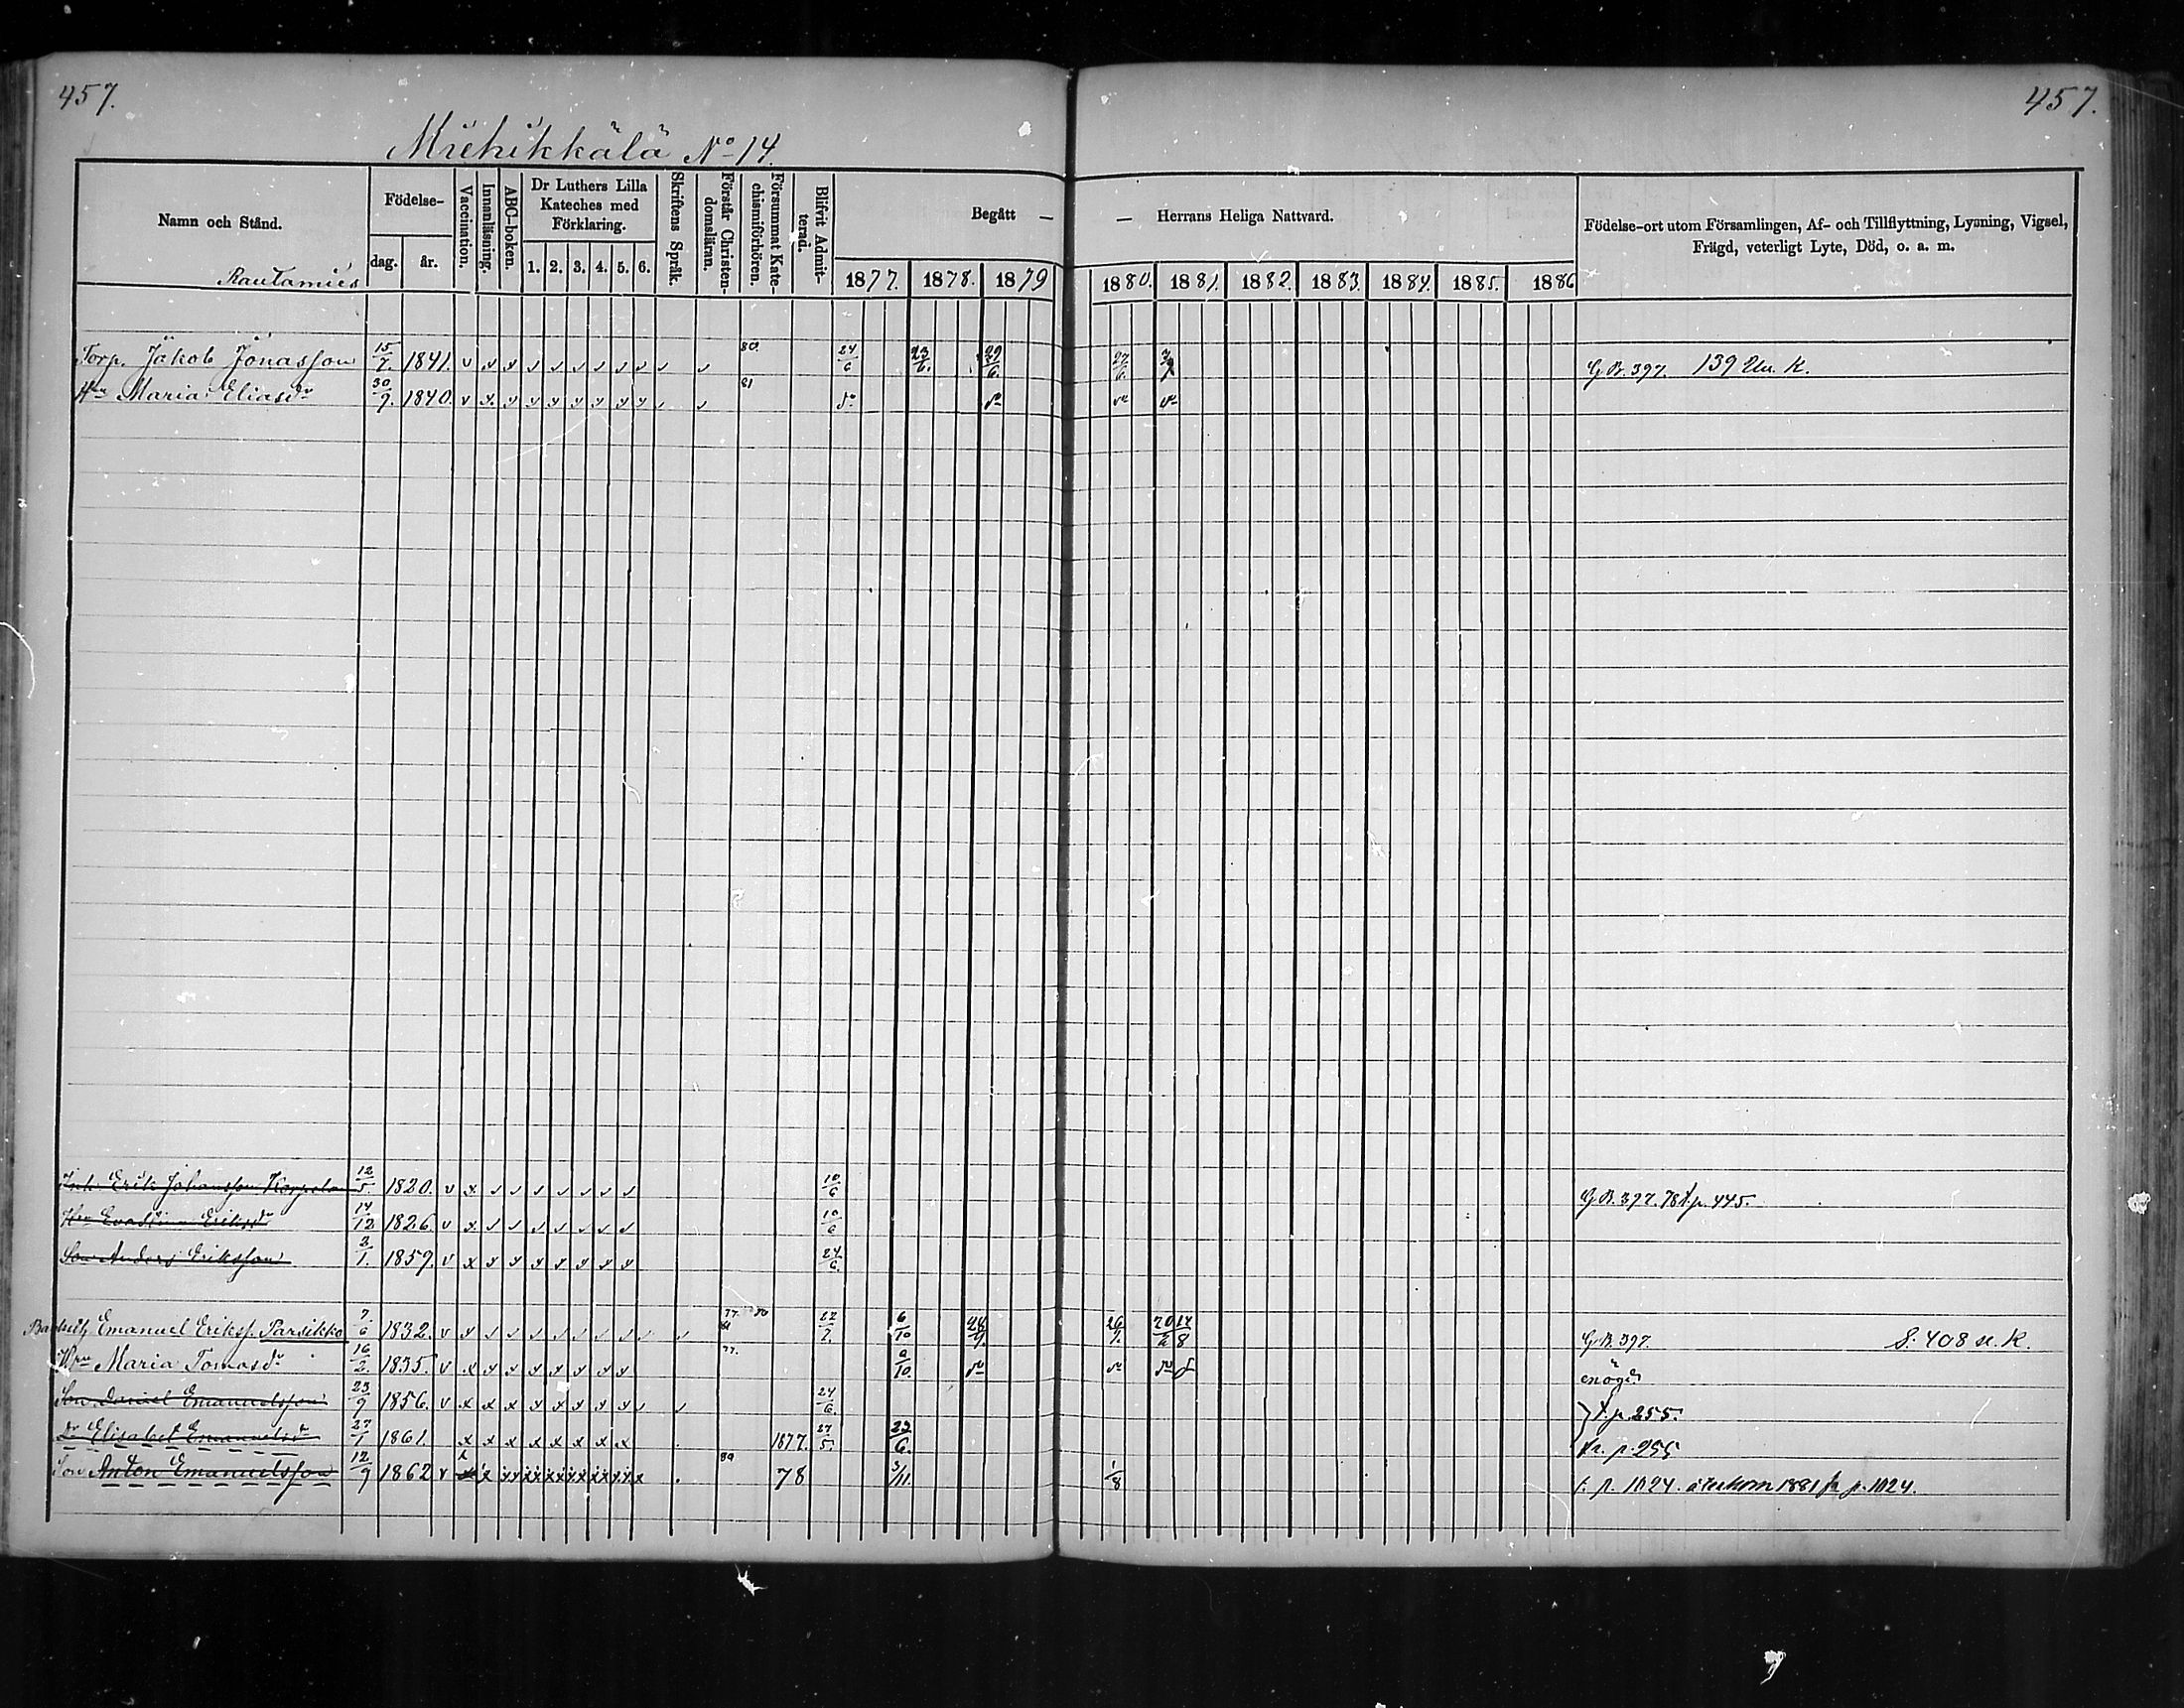 457.
457.
Miehikkälä No 14.
Namn och Stånd.
Födelse-
dag.
år.
Vaccination.
Innanläsning.
ABC-boken.
Dr Luthers Lilla Kateches med Förklaring.
1. 2. 3. 4. 5. 6.
Skriftens Språk.
Förstår Christen-domsläran.
Försummat Kate-chismiförhören.
Blifvit Admit-terad.
Begått — — Herrans Heliga Nattvard.
1877. 1878. 1879 1880. 1881. 1882. 1883. 1884. 1885. 1886
Födelse-ort utom Församlingen, Af- och Tillflyttning, Lysning, Vigsel, Frägd, veterligt Lyte, Död, o. a. m.
Rautamies
Torp. Jakob Jonasson 15/7. 1841. 80. 24/6 23/6. 29/6. 27/6. G.B. 397. 139 K.
Hru Maria Eliasdr 30/9. 1840. 81
Inh. Erik Johansson Koppelo 12/5. 1820. 10/6 G.B. 397. 78 t.p. 445.
Hru Eriksdr 14/12 1826. 10/6
Son Anders Eriksson 2/1. 1859. 24/6.
Emanuel Eriks. Parsikko 7/6 1832. 77. 80 22/7. 6/10 28/9. 26/9. 20/2 14/8 G.B. 397. S. 408 n. K.
Hru Maria Tomasdr 16/2. 1835. 77. 6/10. enögd
Son Daniel Emanuelsson 23/9 1856. 24/6. t.p. 255.
Dr Elisabet Emanuelsdr 27/1 1861. 1877. 27/5. 22/6. fr. p. 255
Son Anton Emanuelsson 12/9 1862 80 78 3/11. 1/8 t. p. 1024. återkom 1881 fr p. 1024.